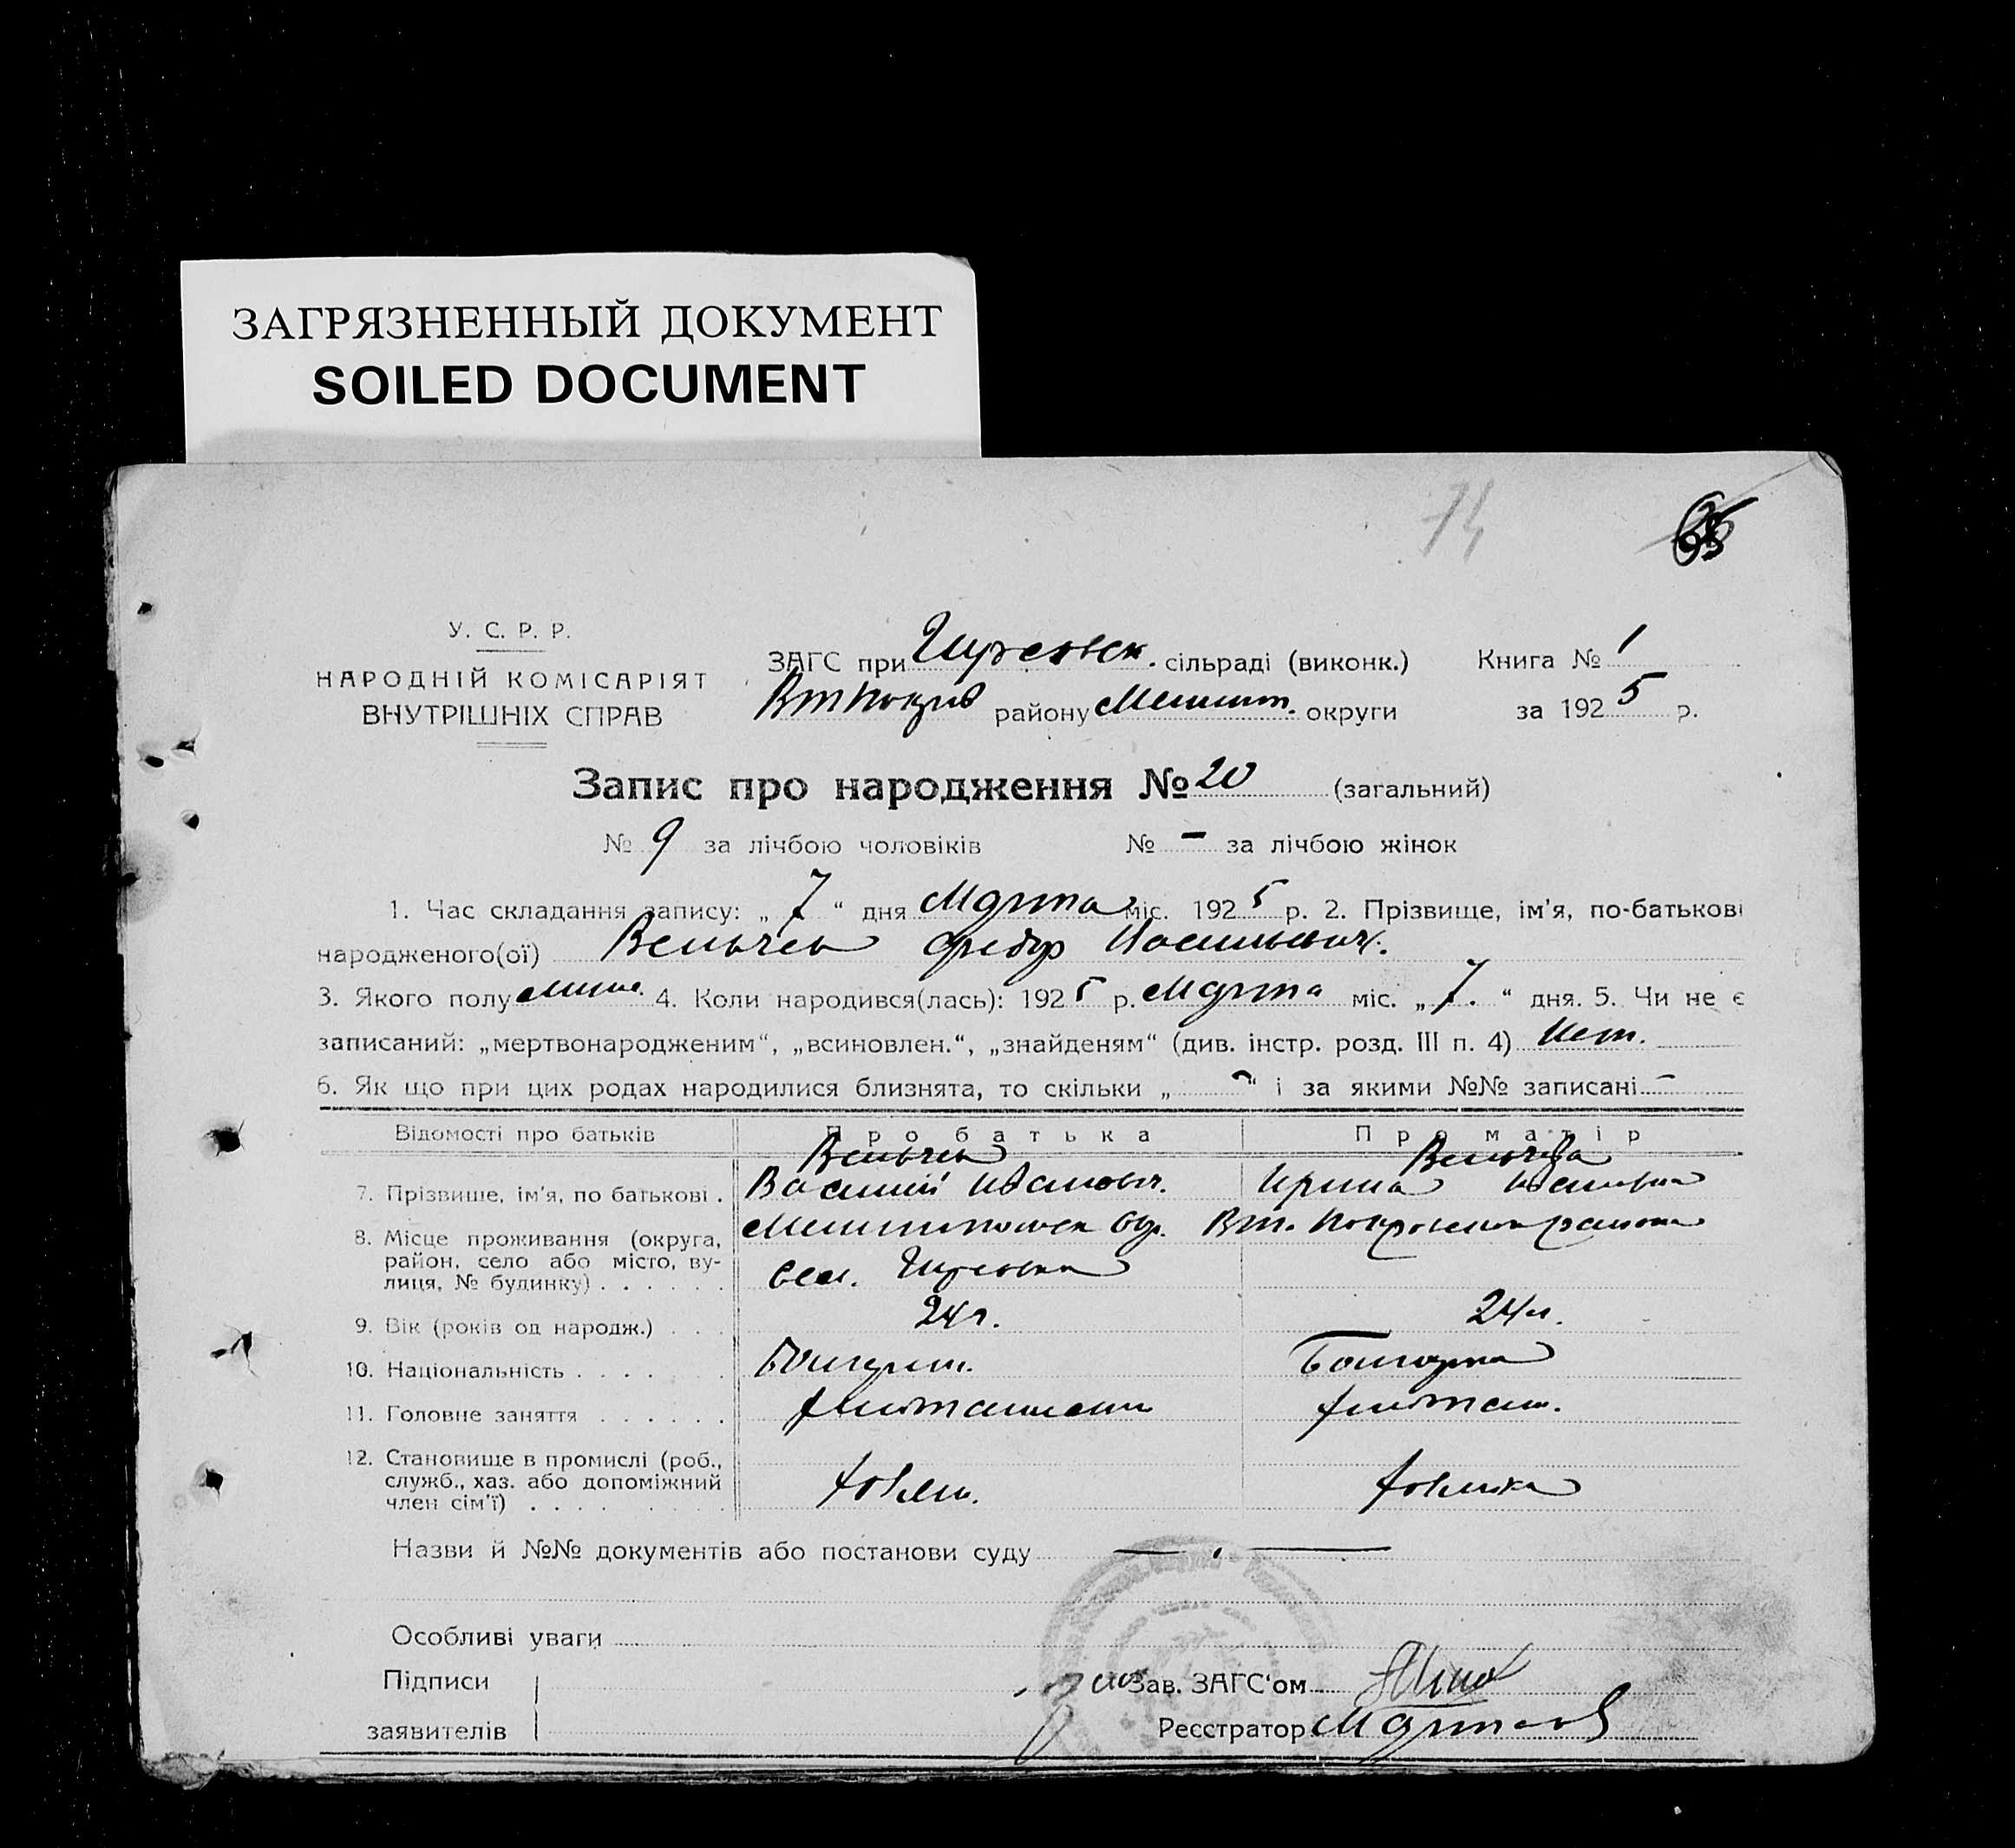 ЗАГРЯЗНЕННЫЙ ДОКУМЕНТ
SOILED DOCUMENT
74
У. С. Р. Р.
НАРОДНІЙ КОМІСАРІЯТ
ВНУТРІШНІХ СПРАВ
ЗАГС при сільраді (виконк.) Книга № 1
району Мелитоп. округи за 1925 р.
Запис про народження № 20 (загальний)
№ 9 за лічбою чоловіків № - за лічбою жінок
1. Час складання запису: „ 7 “ дня Марта міс. 1925 р. 2. Прізвище, ім'я, по-батькові
народженого(ої) Вельчев Федор Васильевич.
3. Якого полу 4. Коли народився(лась): 1925 р. Марта міс. „ 7. “ дня. 5. Чи не є
записаний: „мертвонародженим“, „всиновлен.“, „знайденям“ (див. інстр. розд. III п. 4) Нет.
6. Як що при цих родах народилися близнята, то скільки „ - “ і за якими №№ записані -
Відомості про батьків Про батька Про матір
Вельчев Вельчева
7. Прізвище, ім'я, по батькові . Василий Иванович. Ирина Ивановна
8. Місце проживання (округа, Мелитопольск Окр. Вт. Покровского района
район, село або місто, ву-
лиця, № будинку) . . . . . . сел.
9. Вік (років од народж.) . . . 24 г. 24 г.
10. Національність . . . . . Болгарин. Болгарка
11. Головне заняття . . . . . . Хлебопашец Хлебопаш.
12. Становище в промислі (роб.,
служб., хаз. або допоміжний Хозяин. Хозяйка
член сім'ї) . . . .
Назви й №№ документів або постанови суду
Особливі уваги
Підписи Зав. ЗАГС‘ом
заявителів Реєстратор